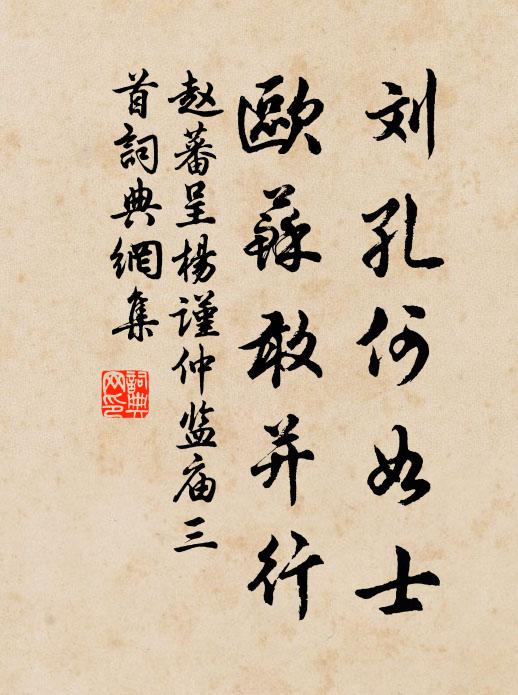 刘孔何如士
歐蘇敢并行
赵蕃呈楊謹仲监庙三
首詞典網集
詞典
网印